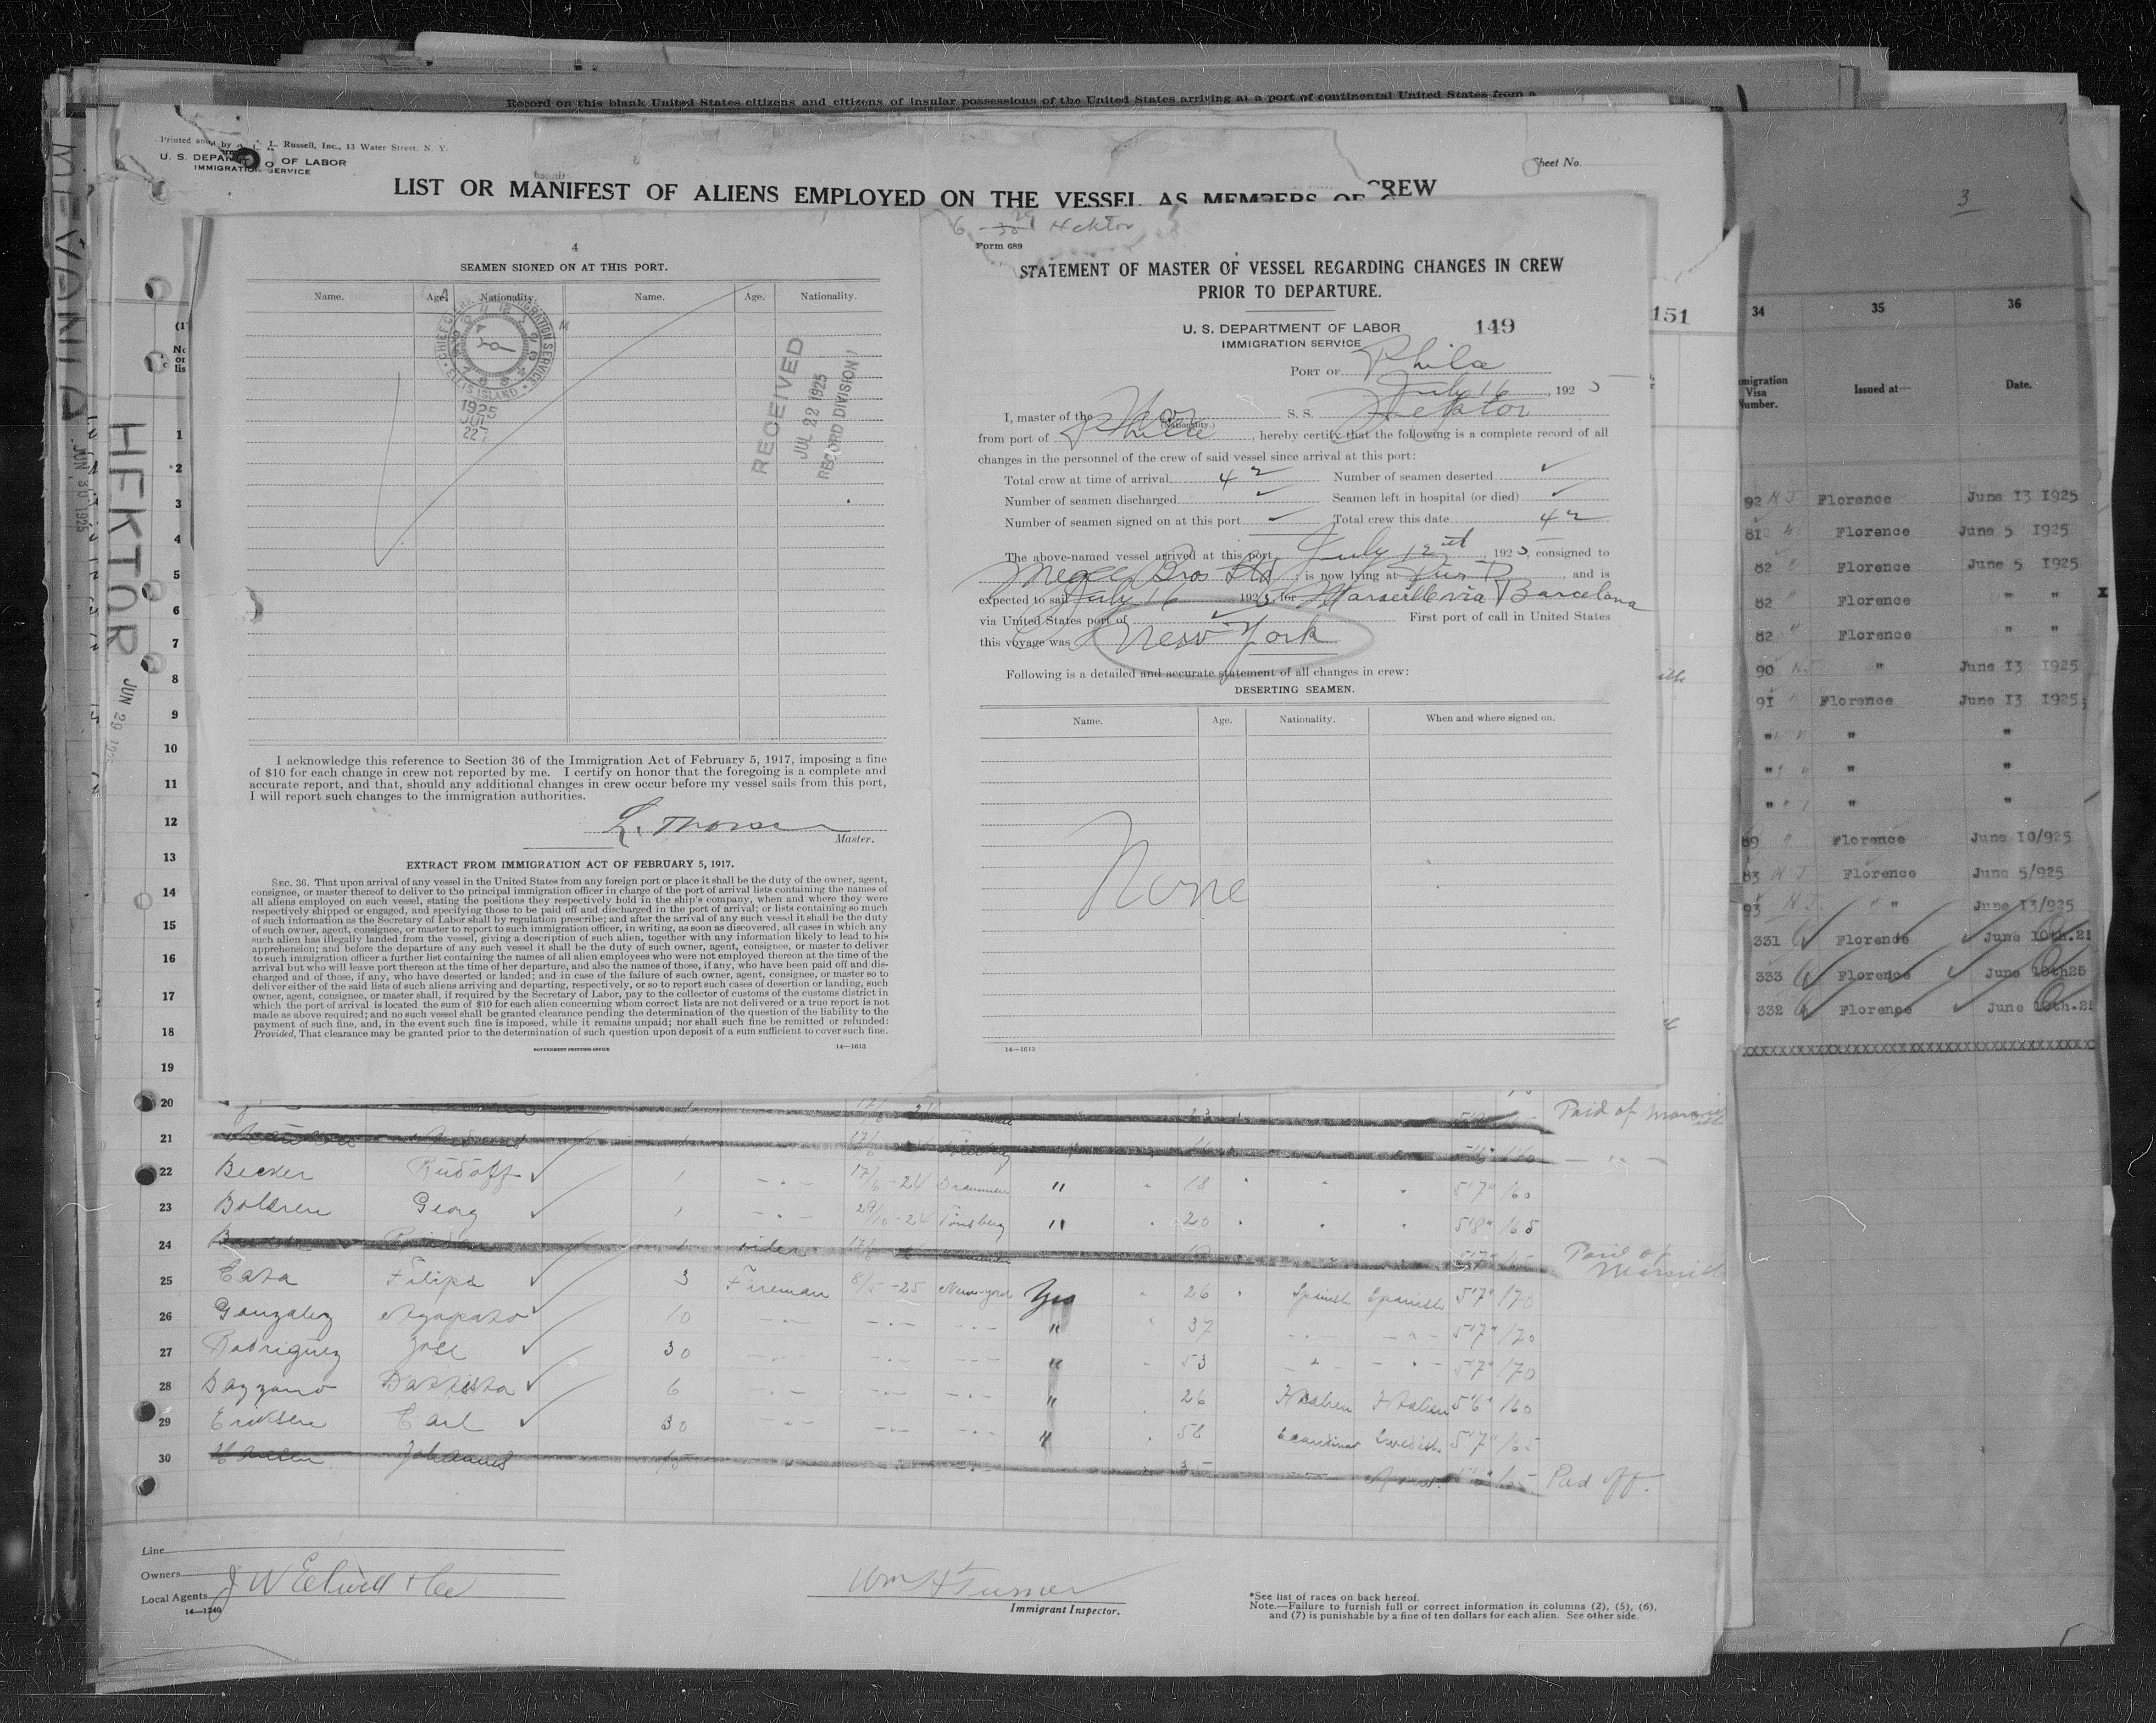 Record on this blank United States citizens and citizens of insular possessions of the United States arriving at a port of continental United States from a
L. Russell, Inc., 13 Water Street, N. Y.
OF LABOR
IMMIGRATION SERVICE
Sheet No.
LIST OR MANIFEST OF ALIENS EMPLOYED ON THE VESSEL AS MEMBERS OF CREW
HEKTOR JUN 29
JUN 30 1925
4
SEAMEN SIGNED ON AT THIS PORT.
Name. Age. Nationality. Name. Age. Nationality.
CHIEF CLERK IMMIGRATION SERVICE
ELLIS ISLAND
1925
JUL
22
RECEIVED
JUL 22 1925
RECORD DIVISION
I acknowledge this reference to Section 36 of the Immigration Act of February 5, 1917, imposing a fine
of $10 for each change in crew not reported by me. I certify on honor that the foregoing is a complete and
accurate report, and that, should any additional changes in crew occur before my vessel sails from this port,
I will report such changes to the immigration authorities.
Master.
EXTRACT FROM IMMIGRATION ACT OF FEBRUARY 5, 1917.
SEC. 36. That upon arrival of any vessel in the United States from any foreign port or place it shall be the duty of the owner, agent,
consignee, or master thereof to deliver to the principal immigration officer in charge of the port of arrival lists containing the names of
all aliens employed on such vessel, stating the positions they respectively hold in the ship's company, when and where they were
respectively shipped or engaged, and specifying those to be paid off and discharged in the port of arrival; or lists containing so much
of such information as the Secretary of Labor shall by regulation prescribe; and after the arrival of any such vessel it shall be the duty
of such owner, agent, consignee, or master to report to such immigration officer, in writing, as soon as discovered, all cases in which any
such alien has illegally landed from the vessel, giving a description of such alien, together with any information likely to lead to his
apprehension; and before the departure of any such vessel it shall be the duty of such owner, agent, consignee, or master to deliver
to such immigration officer a further list containing the names of all alien employees who were not employed thereon at the time of the
arrival but who will leave port thereon at the time of her departure, and also the names of those, if any, who have been paid off and dis-
charged and of those, if any, who have deserted or landed; and in case of the failure of such owner, agent, consignee, or master so to
deliver either of the said lists of such aliens arriving and departing, respectively, or so to report such cases of desertion or landing, such
owner, agent, consignee, or master shall, if required by the Secretary of Labor, pay to the collector of customs of the customs district in
which the port of arrival is located the sum of $10 for each alien concerning whom correct lists are not delivered or a true report is not
made as above required; and no such vessel shall be granted clearance pending the determination of the question of the liability to the
payment of such fine, and, in the event such fine is imposed, while it remains unpaid; nor shall such fine be remitted or refunded:
Provided, That clearance may be granted prior to the determination of such question upon deposit of a sum sufficient to cover such fine.
GOVERNMENT PRINTING OFFICE 14—1613
Hektor
Form 689
STATEMENT OF MASTER OF VESSEL REGARDING CHANGES IN CREW
PRIOR TO DEPARTURE.
U. S. DEPARTMENT OF LABOR 149
IMMIGRATION SERVICE
PORT OF Phila
July 16, 1925
I, master of the Nor (Nationality.) S. S. Hektor
from port of Phila, hereby certify that the following is a complete record of all
changes in the personnel of the crew of said vessel since arrival at this port:
Total crew at time of arrival 42 Number of seamen deserted
Number of seamen discharged Seamen left in hospital (or died)
Number of seamen signed on at this port Total crew this date 42
The above-named vessel arrived at this port July 12, 1925, consigned to
Bros Ltd, is now lying at, and is
expected to sail July 16, 1925, for Marseille via Barcelona
via United States port of First port of call in United States
this voyage was New York
Following is a detailed and accurate statement of all changes in crew:
DESERTING SEAMEN.
Name. Age. Nationality. When and where signed on.
None
14—1613
151
3
34 35 36
Immigration Visa Number. Issued at— Date.
92 Florence June 13 1925
81 Florence June 5 1925
82 Florence June 5 1925
82 Florence " "
82 Florence " "
90 " June 13 1925
91 Florence June 13 1925
" " "
" " "
" " "
89 Florence June 10/925
83 Florence June 5/925
93 " June 13/925
331 Florence June 10th.
333 Florence June 10th25
332 Florence June 10th.
1
2
3
4
5
6
7
8
9
10
11
12
13
14
15
16
17
18
19
20 Paid of
21
22 Becker Rudolf 1 17/6-24 Drammen " 18 5'7" 160
23 Georg 1 29/10-24 Tønsberg " 20 5'8" 165
24 Paid of
25 Filipe 3 Fireman 8/5-25 New-york Yes 26 Spanish Spanish 5'7" 170
26 Gonzalez Agapato 10 " 37 5'7" 170
27 Rodriguez Jose 30 " 53 5'7" 170
28 Battista 6 " 26 Italien Italien 5'6" 160
29 Eriksen Carl 30 " 58 Swedish 5'7" 165
30 Johannes 15 35 Paid off.
Line
Owners
Local Agents J W Elwell & Co
14—1240
Wm H Turner
Immigrant Inspector.
*See list of races on back hereof.
Note.—Failure to furnish full or correct information in columns (2), (5), (6),
and (7) is punishable by a fine of ten dollars for each alien. See other side.